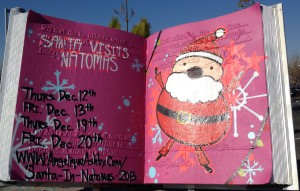 SANTA VISITS
NATOMAS
Thurs Dec. 12th
FRI. Dec. 13th
Thurs Dec. 19th
FRI. Dec. 20th
WWW.AngeliqueAshby.Com/
Santa-In-Natomas-2013